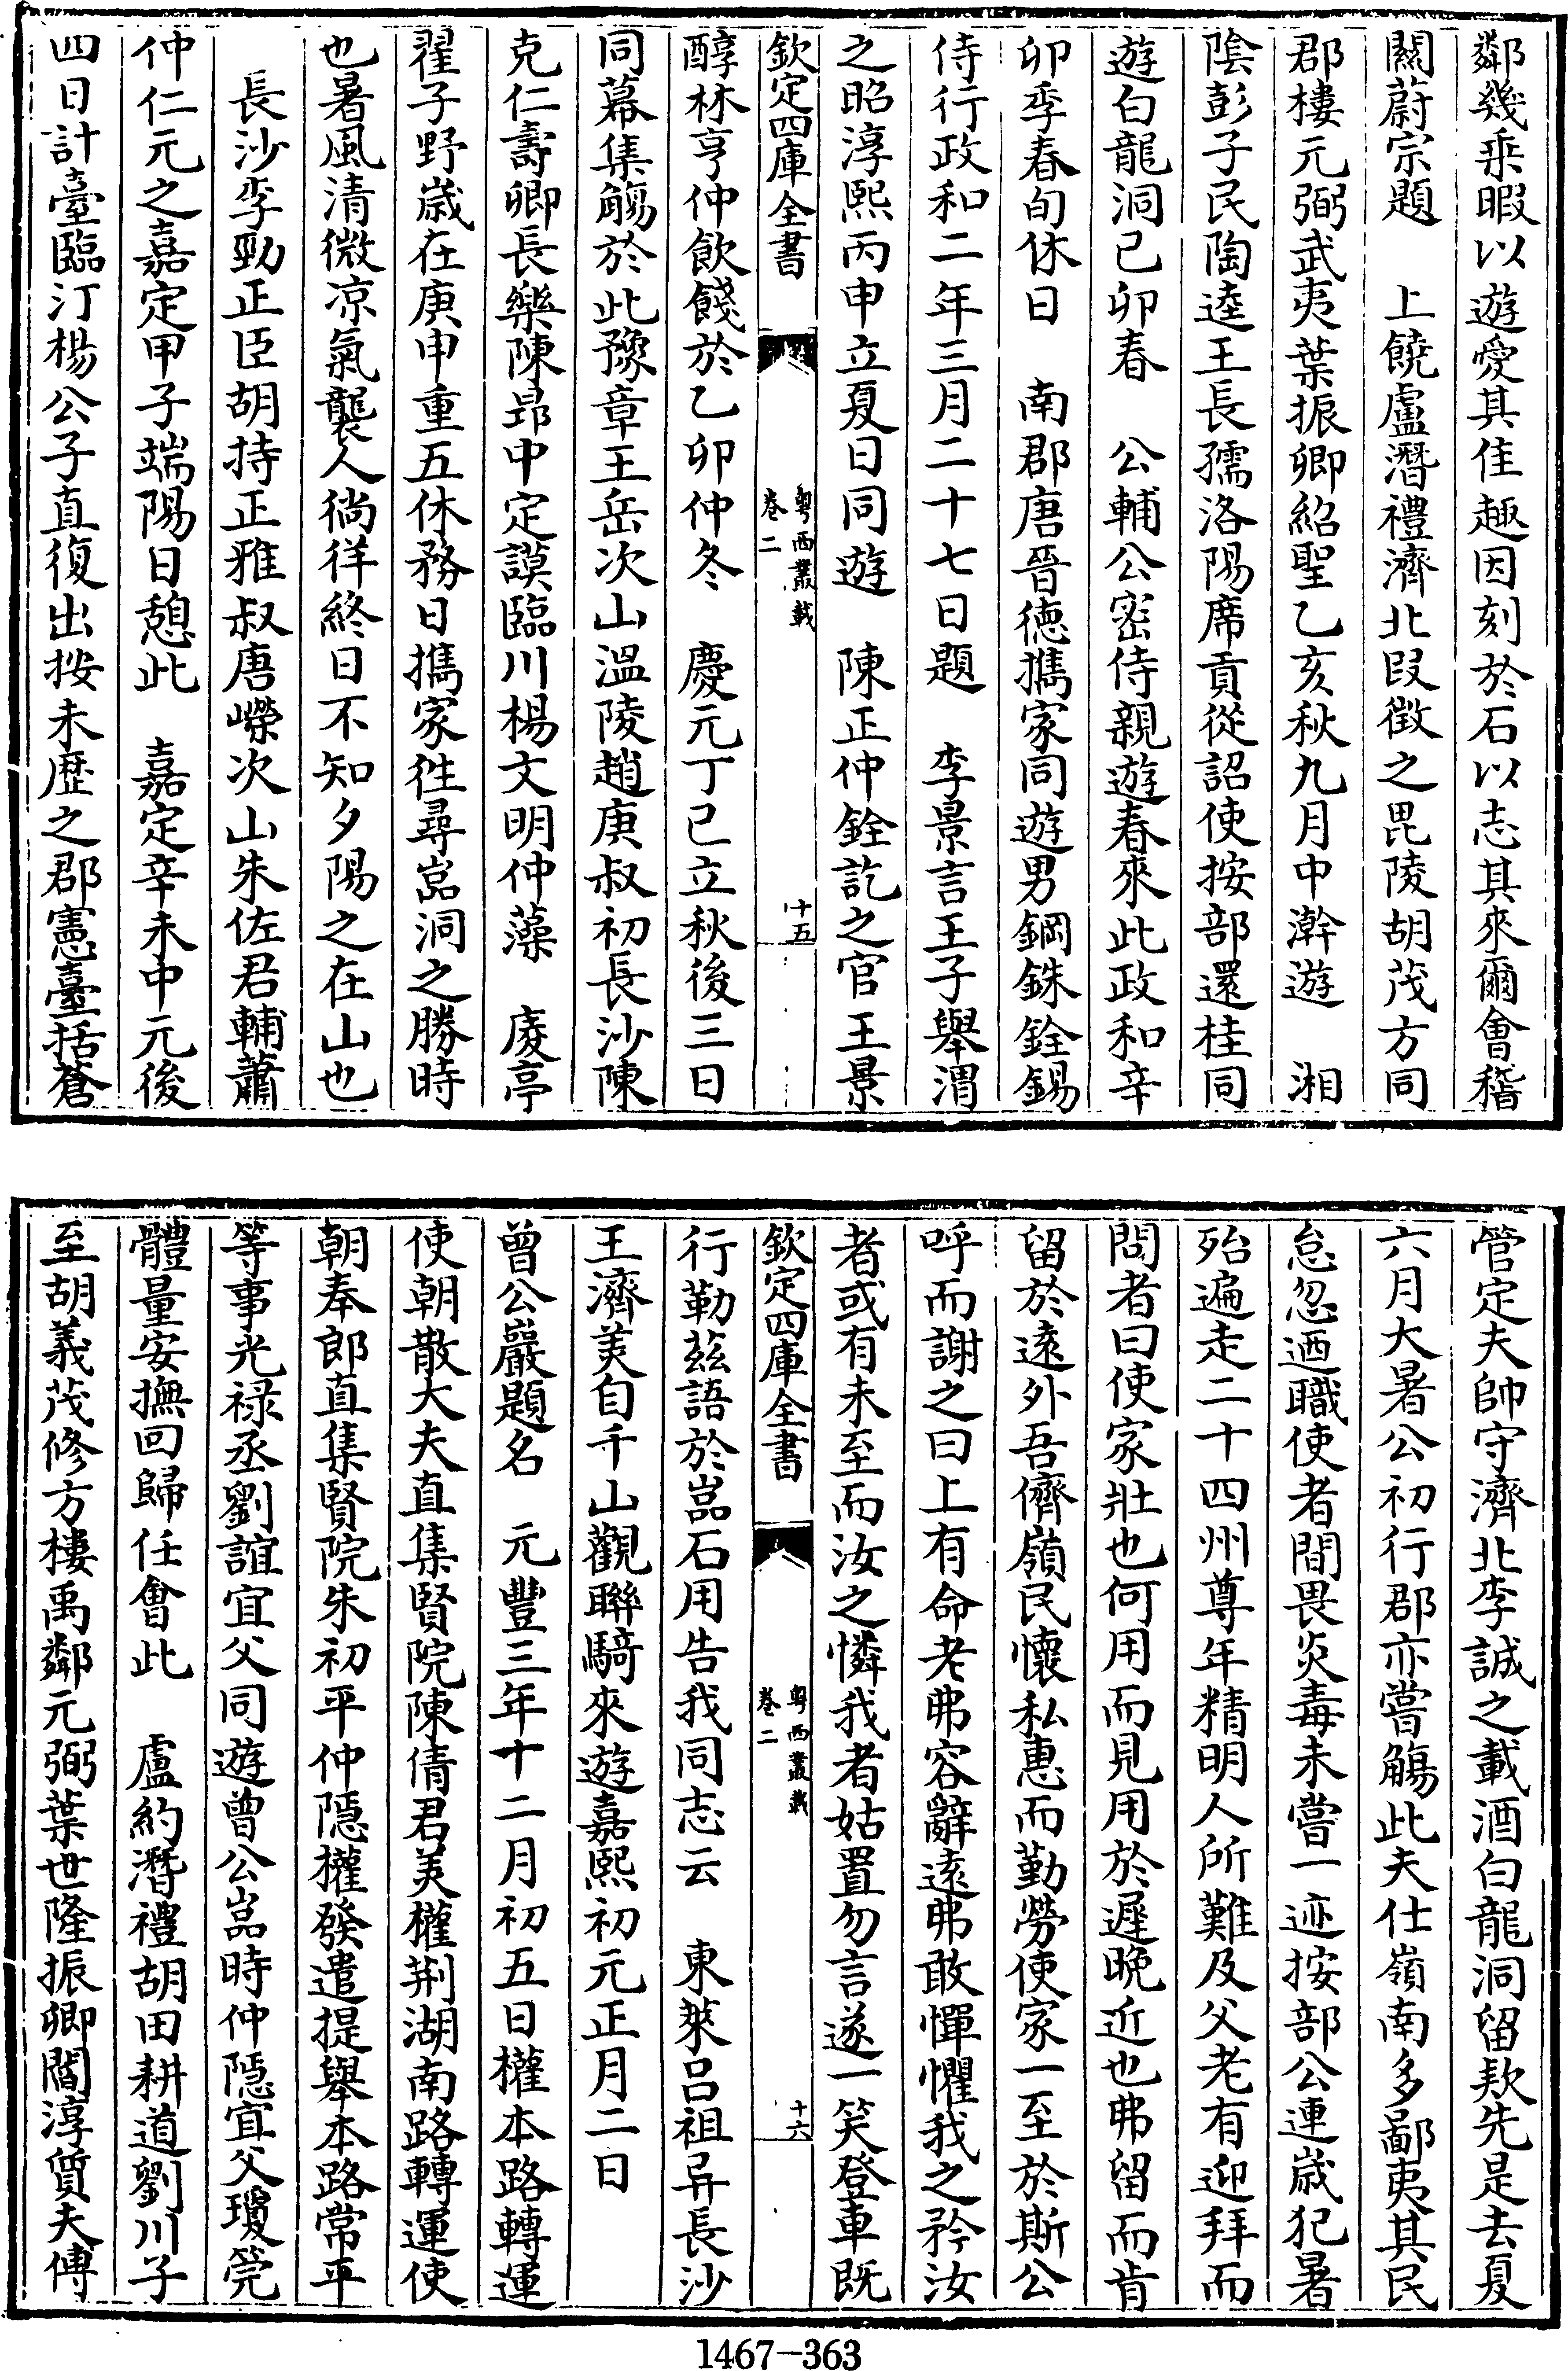 鄰幾乘暇以遊愛其佳趣因刻於石以志其來爾會稽
關蔚宗題　上饒盧潛禮濟北段徴之毘陵胡茂方同
郡樓元弼武夷葉振卿紹聖乙亥秋九月中澣遊　湘
陰彭子民陶逵王長孺洛陽席貢從詔使按部還桂同
遊白龍洞己卯春　公輔公密侍親遊春來此政和辛
卯季春旬休日　南郡唐晉徳攜家同遊男鋼銖銓錫
侍行政和二年三月二十七日題　李景言王子舉渭
之昭淳熙丙申立夏日同遊　陳正仲銓訖之官王景
欽定四庫全書
粤西叢載
卷二
十五
醇林亨仲飲餞於乙卯仲冬　慶元丁巳立秋後三日
同幕集觴於此豫章王岳次山溫陵趙庚叔初長沙陳
克仁壽卿長樂陳昻中定謨臨川楊文明仲藻　庱亭
翟子野嵗在庚申重五休務日攜家徃尋嵓洞之勝時
也暑風清微凉氣襲人徜徉終日不知夕陽之在山也
長沙李勁正臣胡持正雅叔唐嶸次山朱佐君輔蕭
仲仁元之嘉定甲子端陽日憩此　嘉定辛未中元後
四日計臺臨汀楊公子直復出按未歴之郡憲臺括蒼
管定夫帥守濟北李誠之載酒白龍洞留欵先是去夏
六月大暑公初行郡亦嘗觴此夫仕嶺南多鄙夷其民
怠忽迺職使者間畏炎毒未嘗一迹按部公連嵗犯暑
殆遍走二十四州尊年精明人所難及父老有迎拜而
問者曰使家壯也何用而見用於遲晚近也弗留而肯
留於逺外吾儕嶺民懷私惠而勤勞使家一至於斯公
呼而謝之曰上有命老弗容辭逺弗敢憚懼我之矜汝
者或有未至而汝之憐我者姑置勿言遂一笑登車既
欽定四庫全書
粤西叢載
卷二
十六
行勒兹語於嵓石用告我同志云　東萊呂祖异長沙
王濟美自千山觀聯騎來遊嘉熙初元正月二日
曾公巖題名　元豐三年十二月初五日權本路轉運
使朝散大夫直集賢院陳倩君美權荆湖南路轉運使
朝奉郎直集賢院朱初平仲隠權發遣提舉本路常平
等事光禄丞劉誼宜父同遊曾公嵓時仲隠宜父瓊筦
體量安撫回歸任會此　盧約潛禮胡田耕道劉川子
至胡義茂修方樓禹鄰元弼葉世隆振卿閻淳質夫傅
1467-363